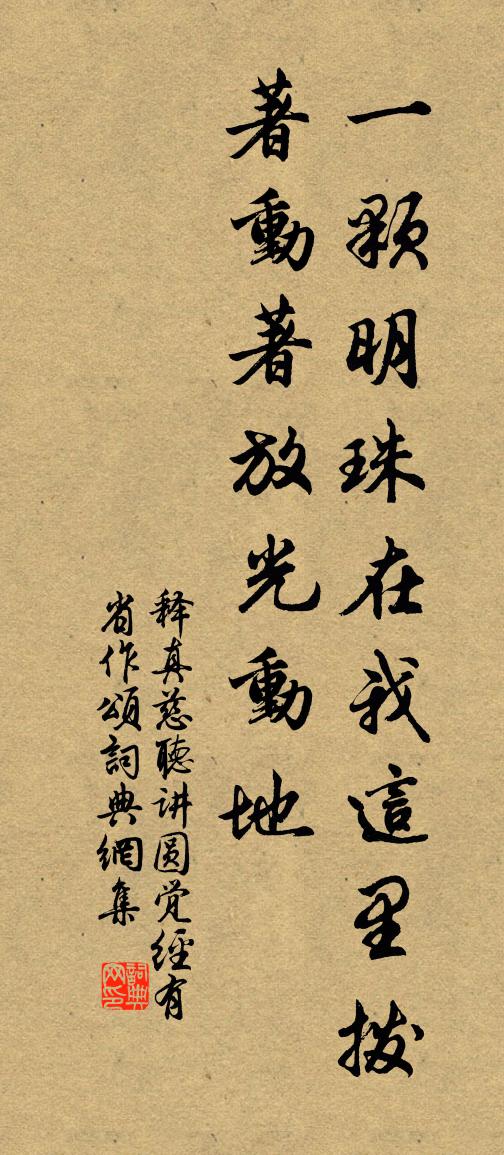 一顆明珠在我這里撥
著動著放光動地
释真慈聽讲圆觉經有
省作頌詞典網集
詞典网印